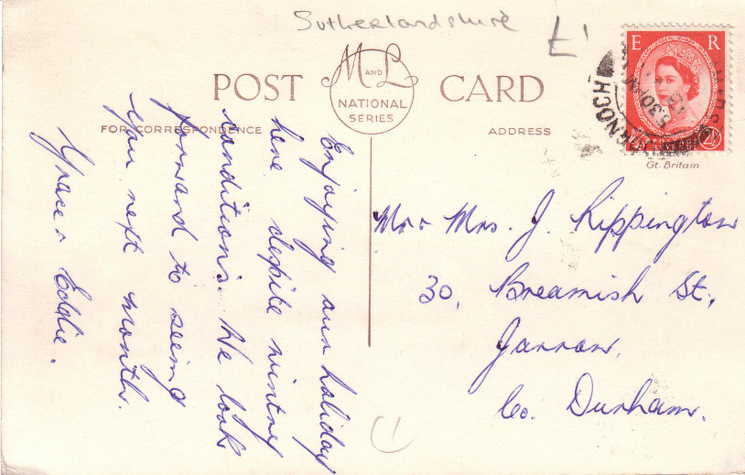 Sutherlandshire
£1
POST CARD
M AND L
NATIONAL
SERIES
FOR CORRESPONDENCE
ADDRESS
E R
2½
DORNOCH
Gt. Britain
Enjoying our holiday
here despite wintry
conditions. We look
forward to seeing
you next month.
Eddie.
Mr & Mrs. J. Rippington
30, Breamish St.,
Jarrow,
Co. Durham.